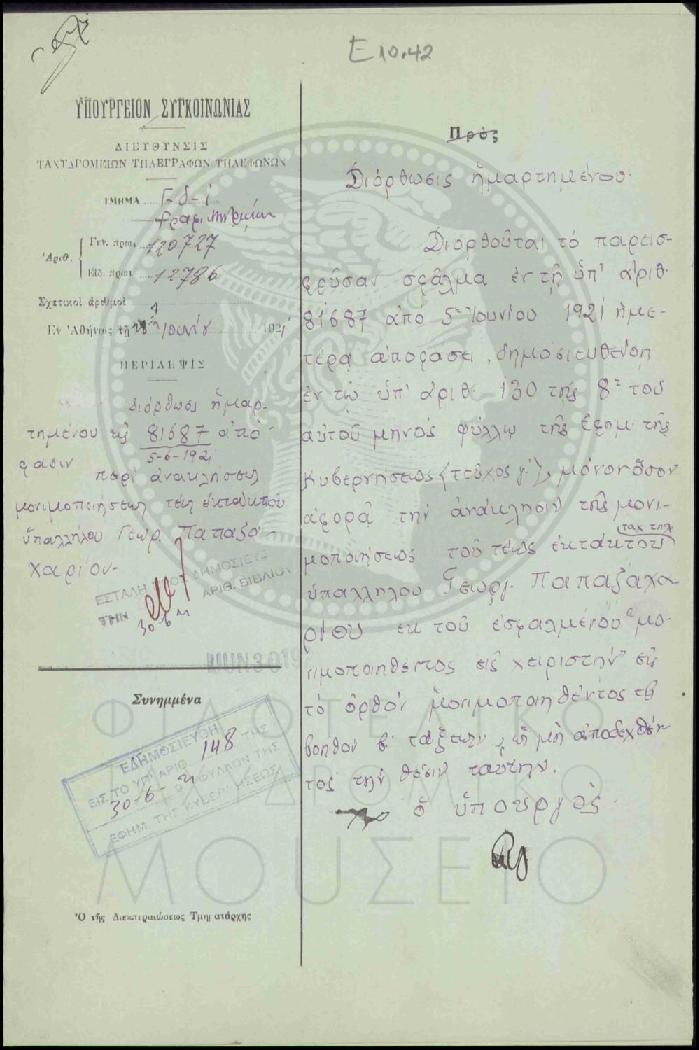 Ε10.42
ΥΠΟΥΡΓΕΙΟΝ ΣΥΓΚΟΙΝΩΝΙΑΣ
ΔΙΕΥΘΥΝΣΙΣ
ΤΑΧΥΔΡΟΜΕΙΩΝ ΤΗΛΕΓΡΑΦΩΝ ΤΗΛΕΦΩΝΩΝ
ΤΜΗΜΑ Γ-δ-ί
Ἀριθ.
Γεν. πρωτ. 120727
Εἰδ. πρωτ. 12786
Σχετικοὶ ἀριθμοὶ
Ἐν Ἀθήναις τῇ Ἰουνίου 1921
ΠΕΡΙΛΗΨΙΣ
Διόρθωσι ἡμαρ-
τημένου εἰς 81687 ἀπό-
5-6-1921
φασιν
περὶ ἀνακλήσεως
μονιμοποιήσεως τέως ἐκτάκτου
ὑπαλλήλου Γεωρ. Παπαζα-
χαρίου-
ΕΣΤΑΛΗ ΔΗΜΟΣΙΕΥΣ
ΤΗΝ ΑΡΙΘ. ΒΙΒΛΙΟΥ
30/6/21
ΙΟΥΝ 30 19
Συνημμένα
ΕΔΗΜΟΣΙΕΥΘΗ
ΕΙΣ ΤΟ ΥΠ' ΑΡΙΘ 148 ΤΗΣ
30-6-21 ΦΥΛΛΟΝ ΤΗΣ
ΕΦΗΜ. ΤΗΣ ΚΥΒΕΡΝΗΣΕΩΣ
Ὁ τῆς Διεκπεραιώσεως Τμηματάρχης
Πρὸς
Διόρθωσις ἡμαρτημένου.
Διορθοῦται τὸ παρεισ-
φρῦσαν σφάλμα ἐν τῇ ὑπ' ἀριθ.
81687 ἀπὸ 5ης Ἰουνίου 1921 ἡμε-
τέρα ἀποφάσει, δημοσιευθείσῃ
ἐν τῷ ὑπ' ἀριθ. 130 τῆς 8ης τοῦ
αὐτοῦ μηνὸς φύλλῳ τῆς ἐφημ. τῆς
Κυβερνήσεως (τεῦχος γ'), μόνον ὅσον
ἀφορᾷ τὴν ἀνάκλησιν τῆς μονι-
μοποιήσεως τοῦ τέως ἐκτάκτου ταχ. τηλ.
ὑπαλλήλου Γεωργ. Παπαζαχα-
ρίου ἐκ τοῦ ἐσφαλμένου "μο-
νιμοποιηθέντος εἰς χειριστὴν" εἰς
τὸ ὀρθὸν μονιμοποιηθέντος εἰς
βοηθὸν β' τάξεως, ὡς μὴ ἀποδεχθέν-
τος τὴν θέσιν ταύτην.
ὁ ὑπουργός.
ΦΙΛΟΤΕΛΙΚΟ
ΤΑΧΥΔΡΟΜΙΚΟ
ΜΟΥΣΕΙΟ